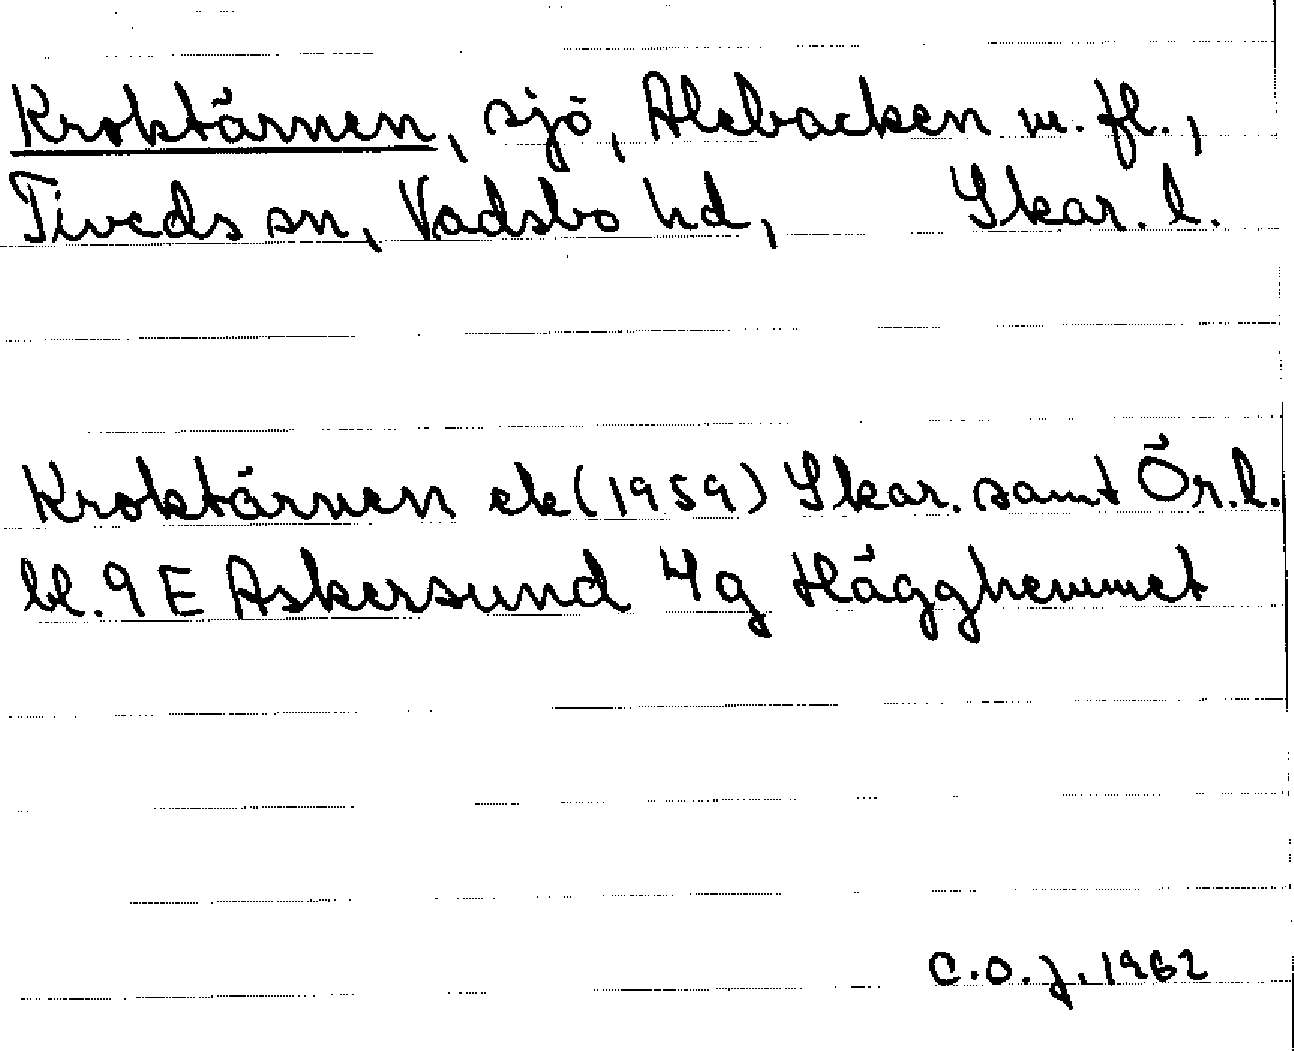 Kroktärnen, sjö, Alebacken m. fl.,
Tiveds sn, Vadsbo hd, Skar. l.
Kroktärnen ek (1959) Skar. samt Ör. l.
bl. 9 E Askersund 4g Hägghemmet
C.O.J. 1962